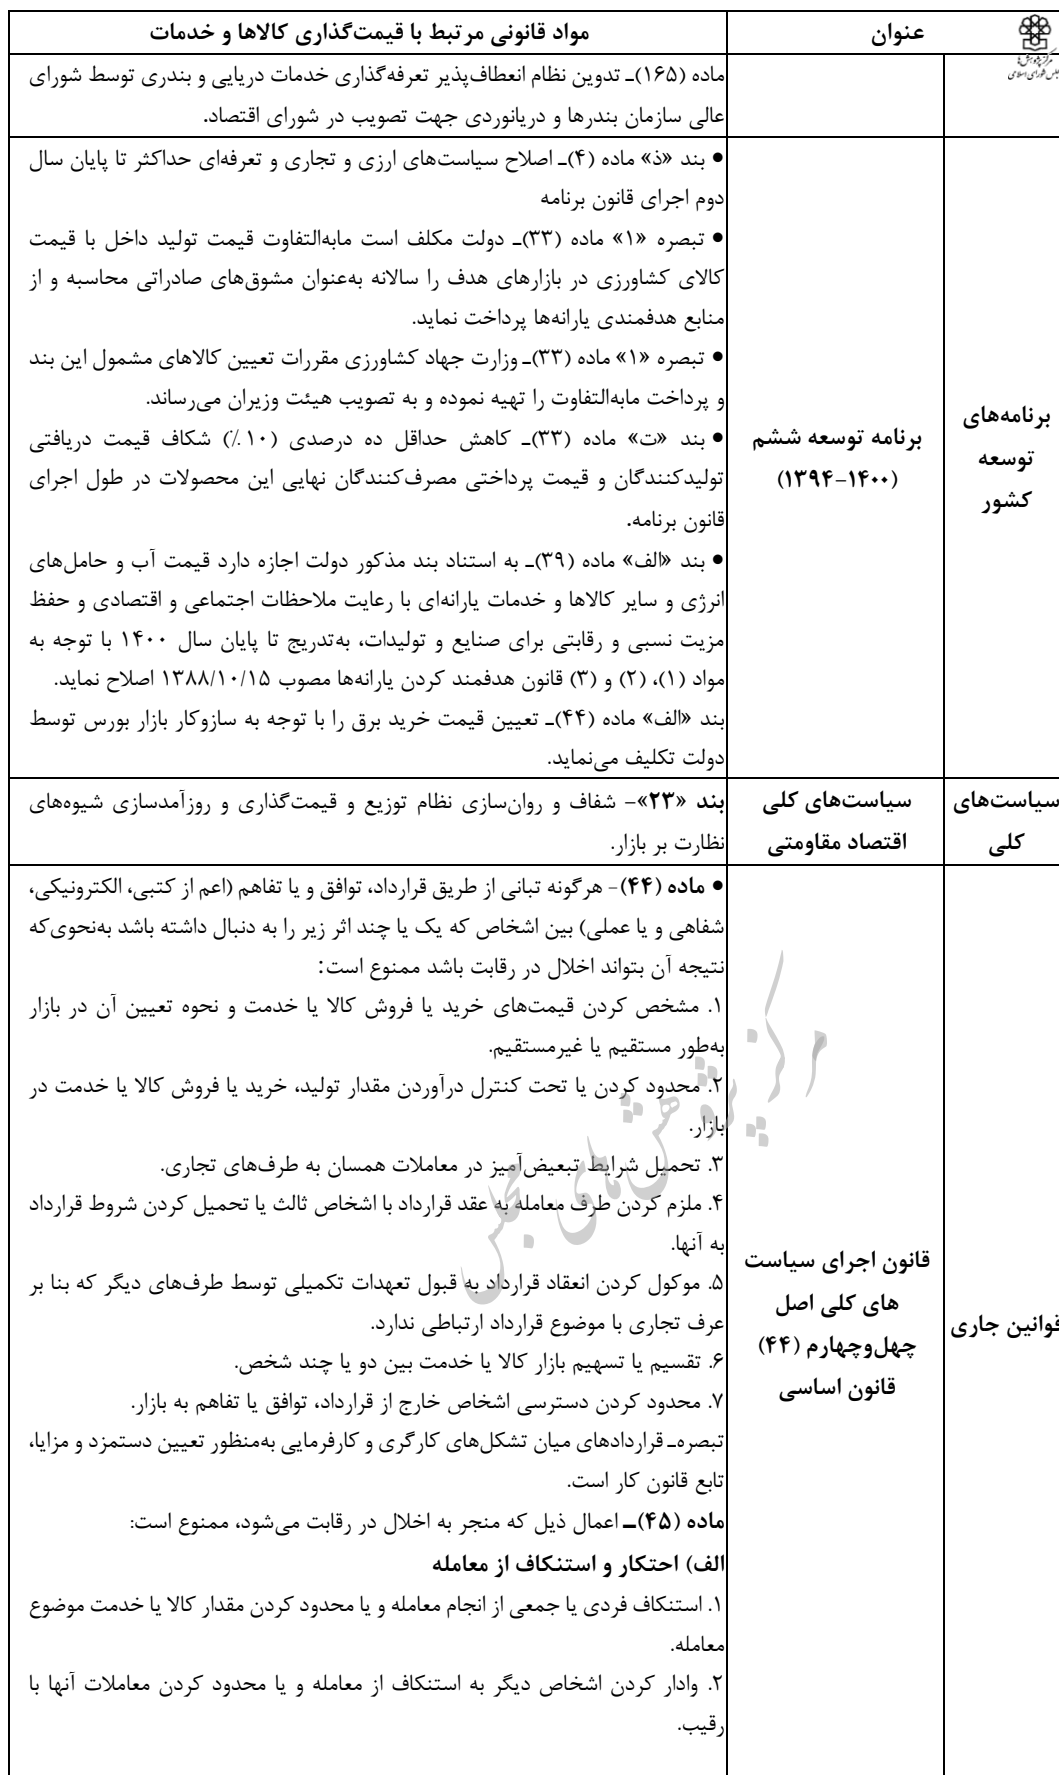 عنوان
مواد قانونی مرتبط با قیمت‌گذاری کالاها و خدمات
مرکز پژوهش‌ها
مجلس شورای اسلامی
ماده (۱۶۵)ـ تدوین نظام انعطاف‌پذیر تعرفه‌گذاری خدمات دریایی و بندری توسط شورای
عالی سازمان بندرها و دریانوردی جهت تصویب در شورای اقتصاد.
برنامه‌های
توسعه
کشور
برنامه توسعه ششم
(۱۳۹۴-۱۴۰۰)
● بند «ذ» ماده (۴)ـ اصلاح سیاست‌های ارزی و تجاری و تعرفه‌ای حداکثر تا پایان سال
دوم اجرای قانون برنامه
● تبصره «۱» ماده (۳۳)ـ دولت مکلف است مابه‌التفاوت قیمت تولید داخل با قیمت
کالای کشاورزی در بازارهای هدف را سالانه به‌عنوان مشوق‌های صادراتی محاسبه و از
منابع هدفمندی یارانه‌ها پرداخت نماید.
● تبصره «۱» ماده (۳۳)ـ وزارت جهاد کشاورزی مقررات تعیین کالاهای مشمول این بند
و پرداخت مابه‌التفاوت را تهیه نموده و به تصویب هیئت وزیران می‌رساند.
● بند «ت» ماده (۳۳)ـ کاهش حداقل ده درصدی (۱۰٪) شکاف قیمت دریافتی
تولیدکنندگان و قیمت پرداختی مصرف‌کنندگان نهایی این محصولات در طول اجرای
قانون برنامه.
● بند «الف» ماده (۳۹)ـ به استناد بند مذکور دولت اجازه دارد قیمت آب و حامل‌های
انرژی و سایر کالاها و خدمات یارانه‌ای با رعایت ملاحظات اجتماعی و اقتصادی و حفظ
مزیت نسبی و رقابتی برای صنایع و تولیدات، به‌تدریج تا پایان سال ۱۴۰۰ با توجه به
مواد (۱)، (۲) و (۳) قانون هدفمند کردن یارانه‌ها مصوب ۱۳۸۸/۱۰/۱۵ اصلاح نماید.
بند «الف» ماده (۴۴)ـ تعیین قیمت خرید برق را با توجه به سازوکار بازار بورس توسط
دولت تکلیف می‌نماید.
سیاست‌های
کلی
سیاست‌های کلی
اقتصاد مقاومتی
بند «۲۳»- شفاف و روان‌سازی نظام توزیع و قیمت‌گذاری و روزآمدسازی شیوه‌های
نظارت بر بازار.
قوانین جاری
قانون اجرای سیاست
های کلی اصل
چهل‌وچهارم (۴۴)
قانون اساسی
● ماده (۴۴)- هرگونه تبانی از طریق قرارداد، توافق و یا تفاهم (اعم از کتبی، الکترونیکی،
شفاهی و یا عملی) بین اشخاص که یک یا چند اثر زیر را به دنبال داشته باشد به‌نحوی‌که
نتیجه آن بتواند اخلال در رقابت باشد ممنوع است:
۱. مشخص کردن قیمت‌های خرید یا فروش کالا یا خدمت و نحوه تعیین آن در بازار
به‌طور مستقیم یا غیرمستقیم.
۲. محدود کردن یا تحت کنترل درآوردن مقدار تولید، خرید یا فروش کالا یا خدمت در
بازار.
۳. تحمیل شرایط تبعیض‌آمیز در معاملات همسان به طرف‌های تجاری.
۴. ملزم کردن طرف معامله به عقد قرارداد با اشخاص ثالث یا تحمیل کردن شروط قرارداد
به آنها.
۵. موکول کردن انعقاد قرارداد به قبول تعهدات تکمیلی توسط طرف‌های دیگر که بنا بر
عرف تجاری با موضوع قرارداد ارتباطی ندارد.
۶. تقسیم یا تسهیم بازار کالا یا خدمت بین دو یا چند شخص.
۷. محدود کردن دسترسی اشخاص خارج از قرارداد، توافق یا تفاهم به بازار.
تبصره‌ـ قراردادهای میان تشکل‌های کارگری و کارفرمایی به‌منظور تعیین دستمزد و مزایا،
تابع قانون کار است.
ماده (۴۵)ـ اعمال ذیل که منجر به اخلال در رقابت می‌شود، ممنوع است:
الف) احتکار و استنکاف از معامله
۱. استنکاف فردی یا جمعی از انجام معامله و یا محدود کردن مقدار کالا یا خدمت موضوع
معامله.
۲. وادار کردن اشخاص دیگر به استنکاف از معامله و یا محدود کردن معاملات آنها با
رقیب.
مرکز پژوهش‌های مجلس